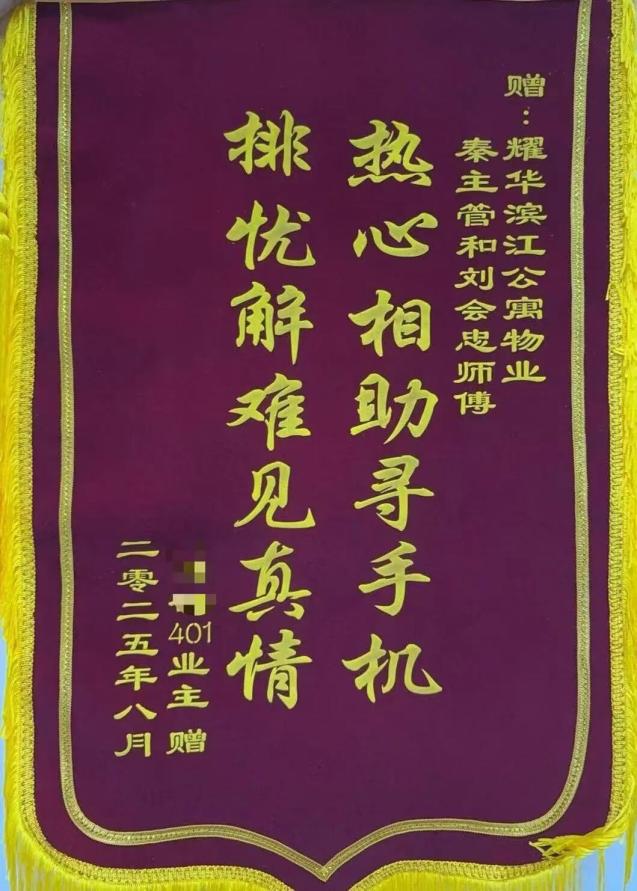 赠：耀华滨江公寓物业
秦主管和刘会忠师傅
热心相助寻手机
排忧解难见真情
401业主 赠
二零二五年八月